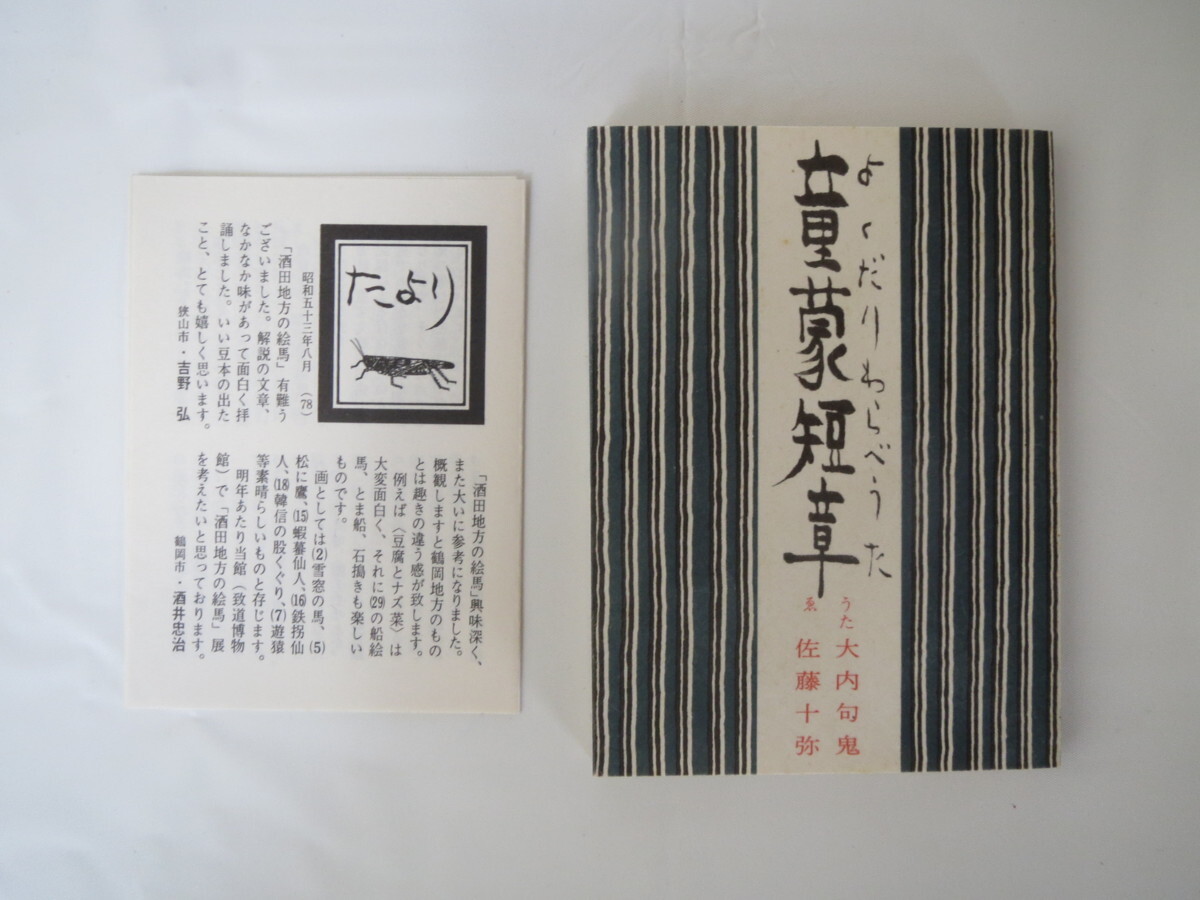 たより
昭和五十三年八月 (78)
「酒田地方の絵馬」有難う
ございました。解説の文章、
なかなか味があって面白く拝
誦しました。いい豆本の出た
こと、とても嬉しく思います。
狭山市・吉野 弘
「酒田地方の絵馬」興味深く、
また大いに参考になりました。
概観しますと鶴岡地方のもの
とは趣きの違う感が致します。
例えば〈豆腐とナズ菜〉は
大変面白く、それに(29)の船絵
馬、とま船、石搗きも楽しい
ものです。
画としては(2)雪窓の馬、(5)
松に鷹、(15)蝦蟇仙人、(16)鉄拐仙
人、(18)韓信の股くぐり、(7)遊猿
等素晴らしいものと存じます。
明年あたり当館(致道博物
館)で「酒田地方の絵馬」展
を考えたいと思っております。
鶴岡市・酒井忠治
よくだりわらべうた
童蒙短章
うた 大内句鬼
ゑ 佐藤十弥